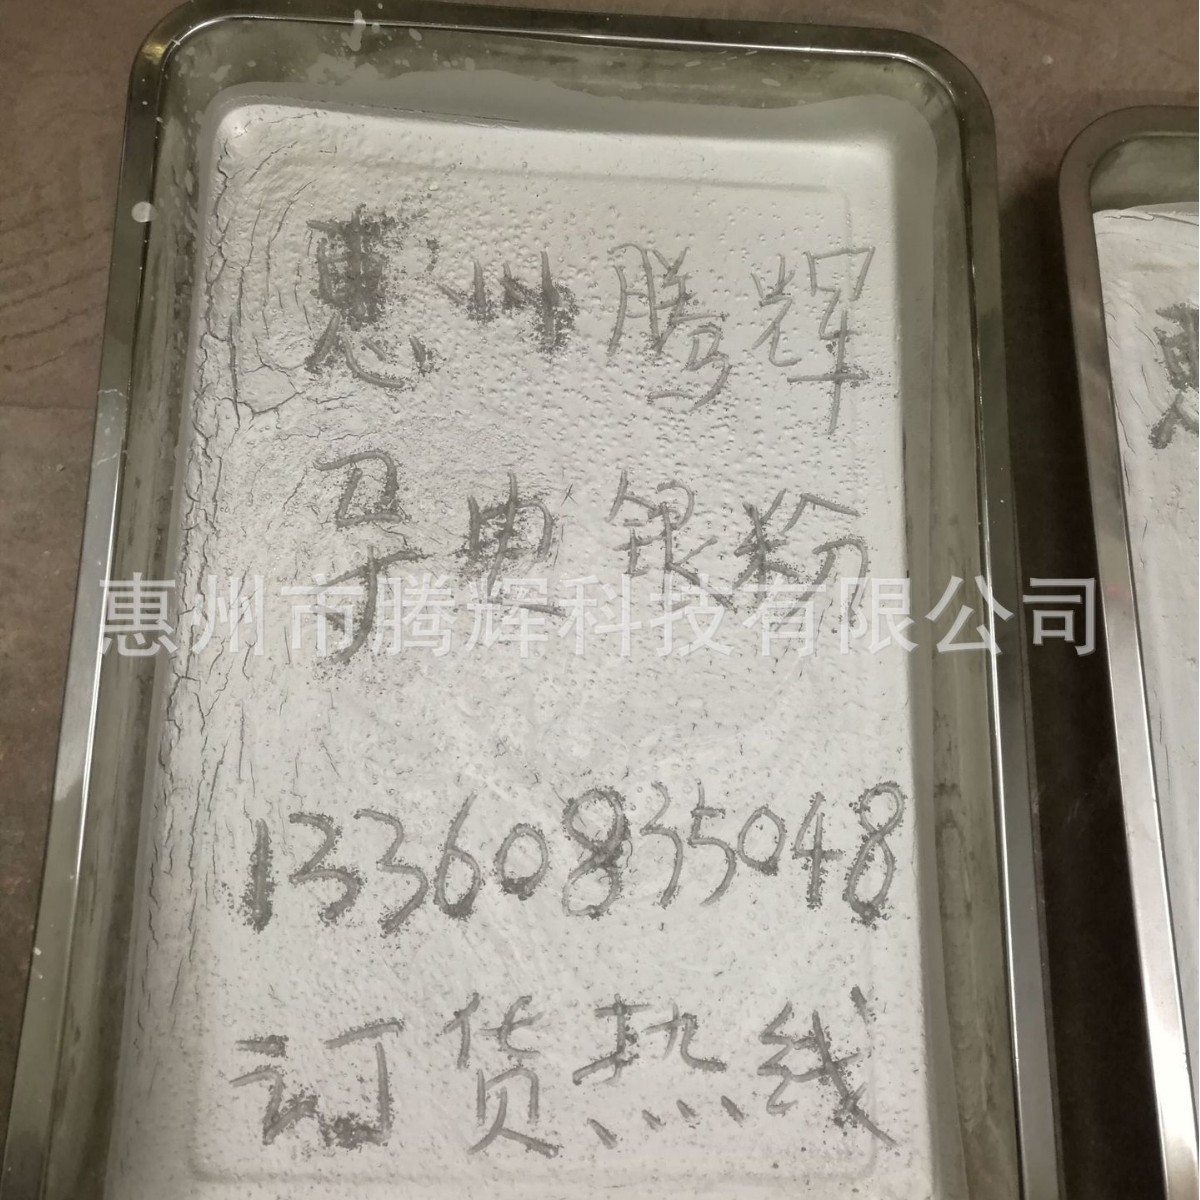 惠州腾辉
导电银粉
惠州市腾辉科技有限公司
13360835048
订货热线